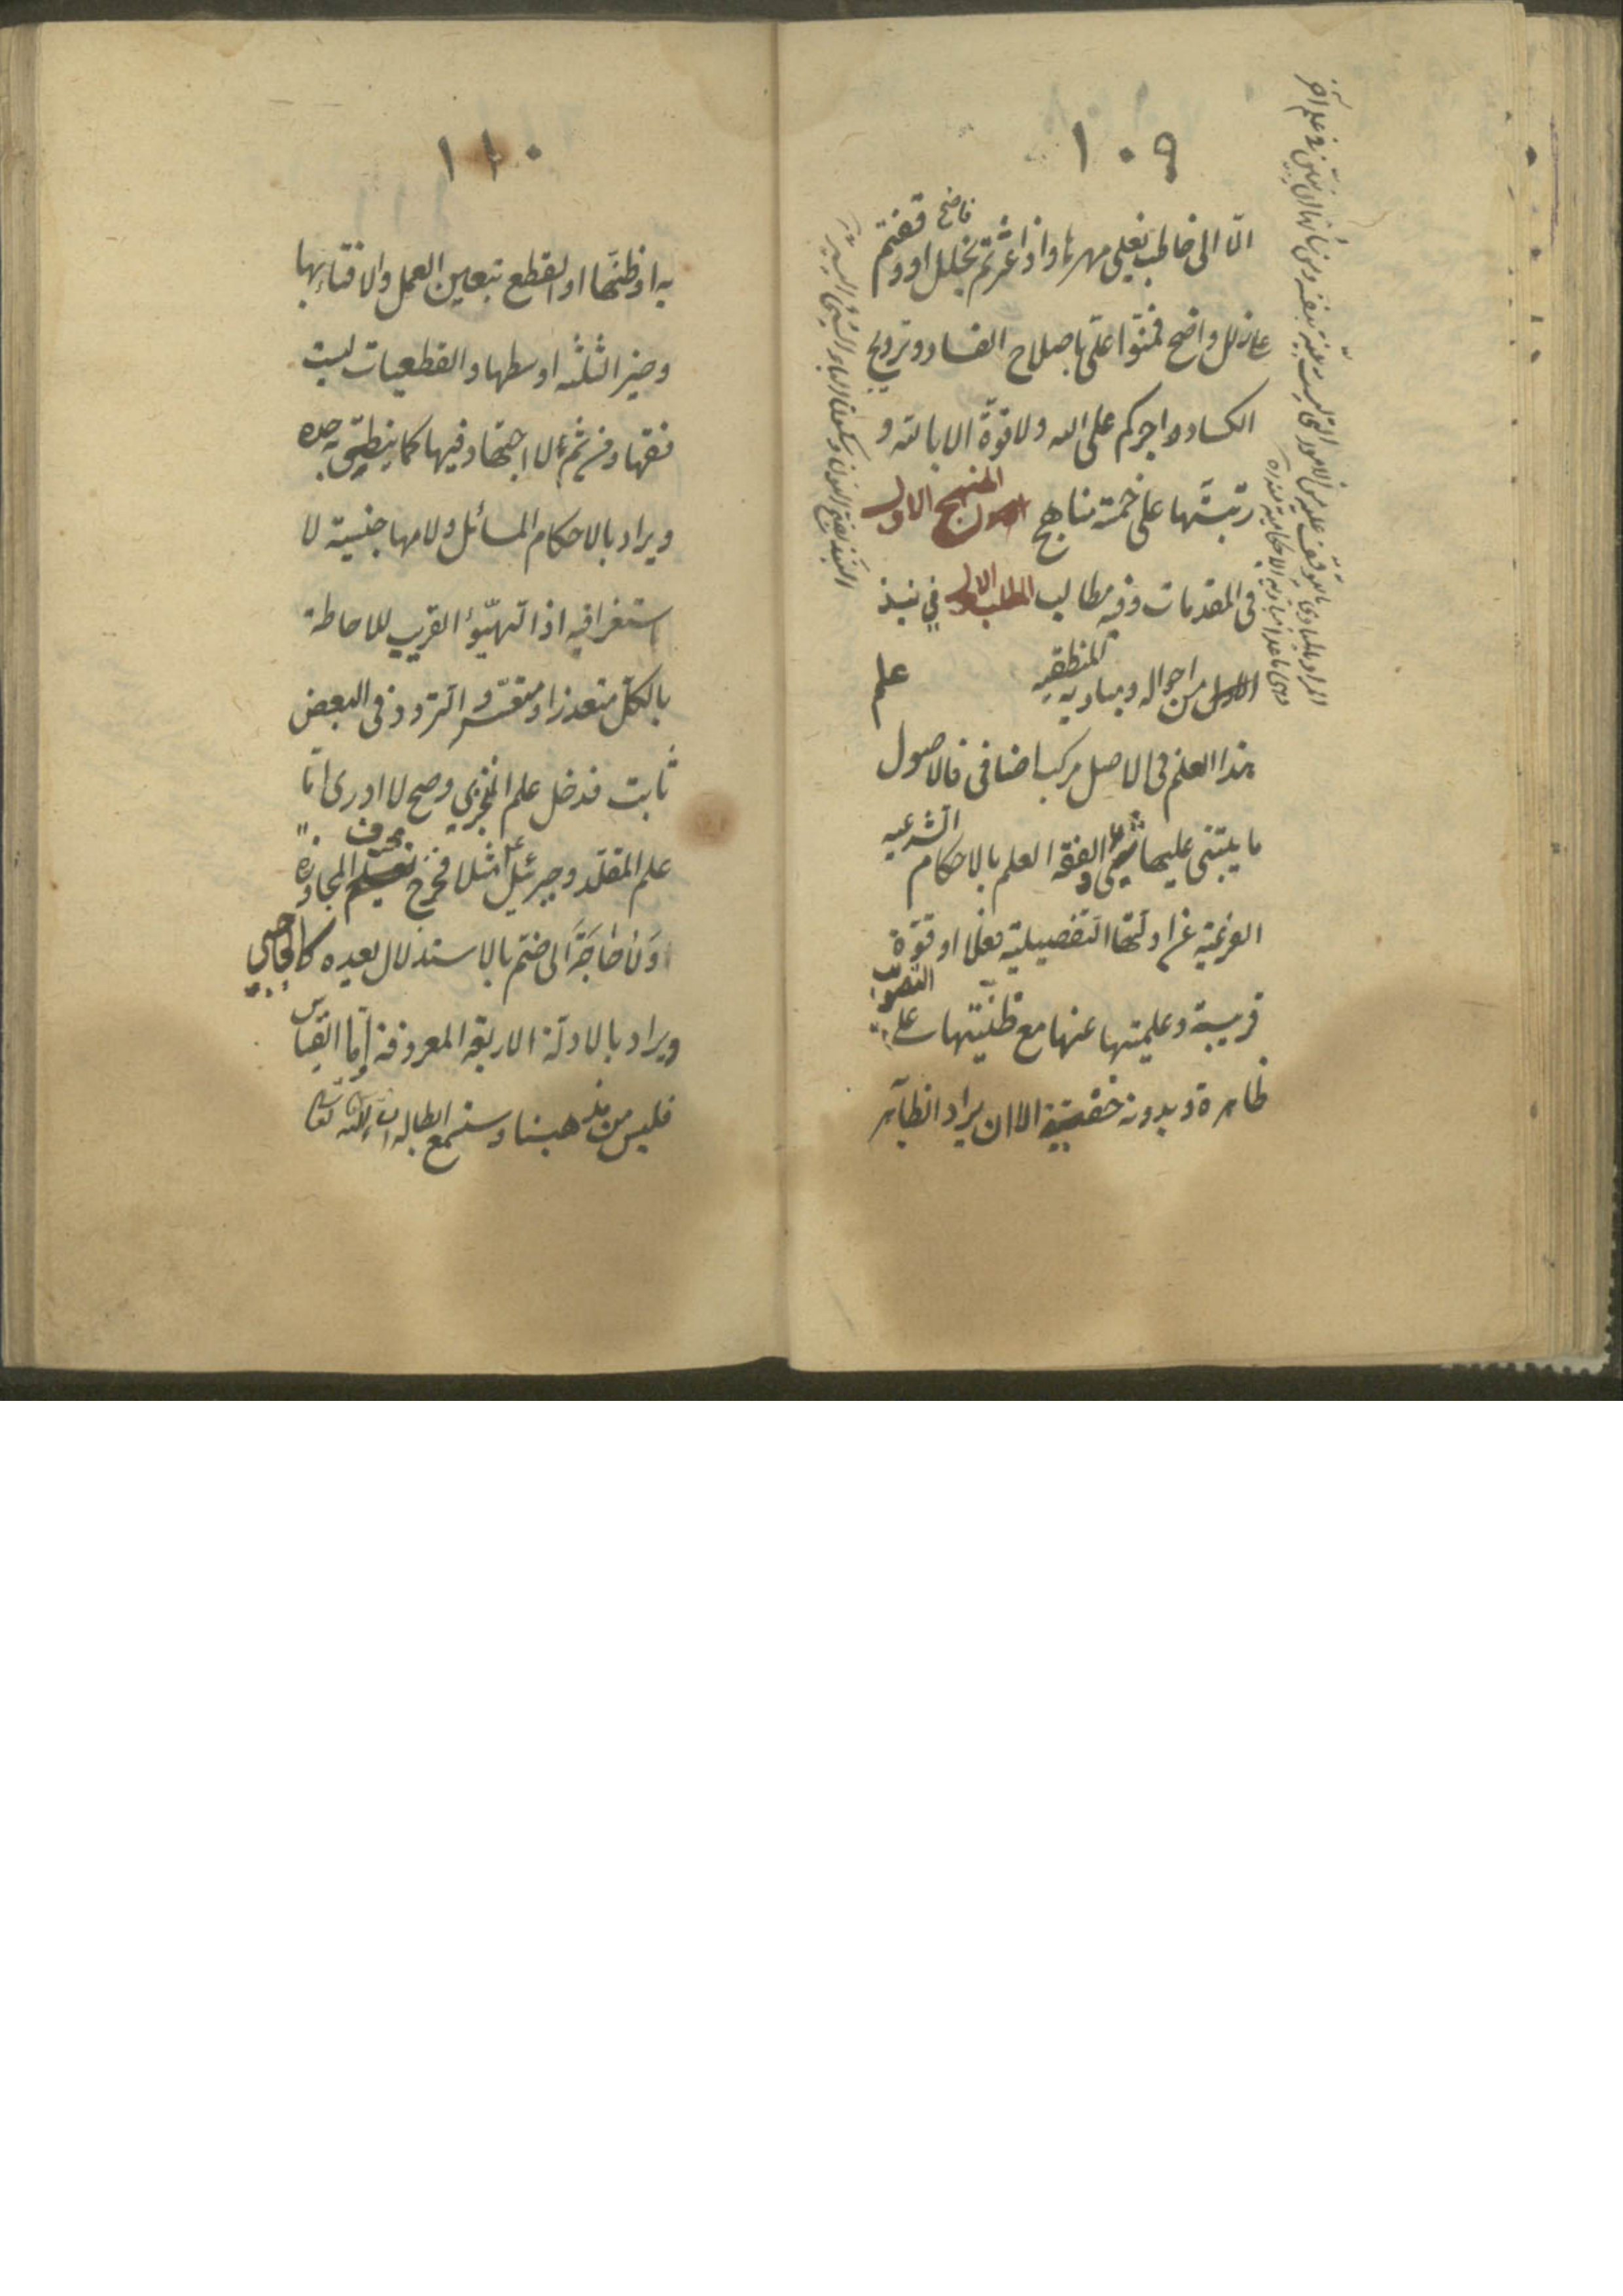 ١٠٩
الّا الى خاطب يغلى مهرها واذا عثرتم بخلل او وقفتم
على زلل واضح فمنّوا علىّ باصلاح الفساد وترويج
الكساد واجركم على الله ولا قوّة الا بالله و
رتبتها على خمسة مناهج المنهج الاول
فى المقدمات وفيه مطالب المطلب الاول في نبذ
من احواله ومباديه المنطقيه علم
هذا العلم فى الاصل مركب اضافى فالاصول
ما يبتنى عليها والفقه العلم بالاحكام الشرعيه
الفرعية عن ادلتها التفصيلية فعلا او قوّة
قريبة وعلميتها عنها مع ظنيتها على التصويب
ظاهرة وبدونه خفيّة الا ان يراد الظاهر
١١٠
به او ظنّها او القطع بتعيين العمل والافتاء بها
وخير الثلثه اوسطها والقطعيات ليست
فقها ومن ثم لا اجتهاد فيها كما ينطق به حده
ويراد بالاحكام المسائل ولامها جنسية لا
استغراقيه اذ التهيّؤ القريب للاحاطة
بالكلّ متعذر او متعسّر والتردد فى البعض
ثابت فدخل علم المتجزى وصح لا ادرى امّا
علم المقلّد وجبرئيل مثلا فخرج بحرف المجاوزة
وَلا حاجَةَ الى ضمّ بالاستدلال بعده كالحاجبي
ويراد بالادلّة الاربعة المعروفة امّا القياس
فليس من مذهبنا وستسمع ابطاله ان شاء الله تعالى